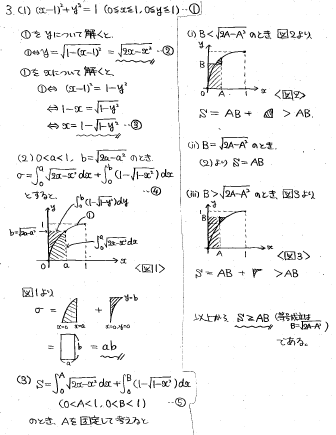 3. (1) (x-1)²+y²=1 (0≦x≦1, 0≦y≦1) …①
①を y について解くと、
①⇔ y=√(1-(x-1)²) = √(2x-x²) …②
①を x について解くと、
①⇔ (x-1)²=1-y²
⇔ 1-x=√(1-y²)
⇔ x=1-√(1-y²) …③
(2) 0<a<1, b=√(2a-a²) のとき、
σ=∫₀ᵃ√(2x-x²)dx+∫₀ᵇ(1-√(1-x²))dx …④
とすると、
∫₀ᵇ(1-√(1-y²))dy
y
①
1
b=√(2a-a²)
∫₀ᵃ√(2x-x²)dx
0 a 1 x
<図1>
図1より
σ = + y=b
x=0 x=a x=0 y=0
= b = ab
a
(3) S=∫₀ᴬ√(2x-x²)dx+∫₀ᴮ(1-√(1-x²))dx
(0<A<1, 0<B<1) …⑤
のとき、Aを固定して考えると
(i) B<√(2A-A²) のとき 図2より、
y
1
B
0 A 1 x
<図2>
S = AB + > AB
(ii) B=√(2A-A²) のとき、
(2)より S=AB
(iii) B>√(2A-A²) のとき、図3より
y
1
B
0 A 1 x
<図3>
S = AB + > AB
以上から S≧AB (等号成立は B=√(2A-A²))
である。